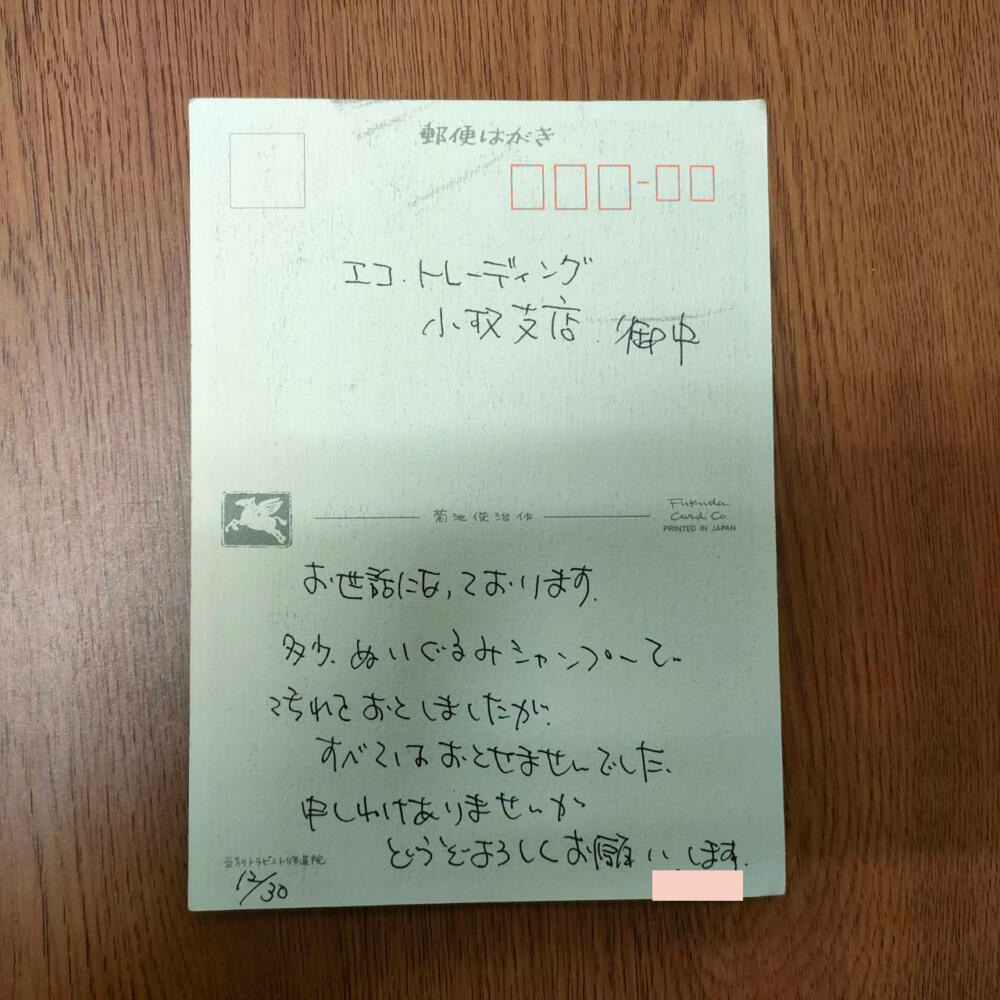 郵便はがき
エコ・トレーディング
小牧支店 御中
菊池俊治作
Fukuda
Card Co.
PRINTED IN JAPAN
お世話になっております。
多少、ぬいぐるみシャンプーで
汚れをおとしましたが、
すべてはおとせませんでした。
申しわけありませんが
どうぞよろしくお願いします。
当別トラピスト修道院
12/30